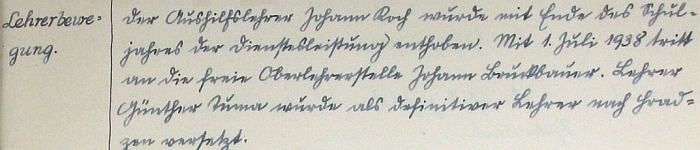 Lehrerbewe=
gung.
Der Aushilfslehrer Johann Koch wurde mit Ende des Schul-
jahres der Dienstesleistung enthoben. Mit 1. Juli 1938 tritt
an die freie Oberlehrerstelle Johann Bruckbauer. Lehrer
Günther Tuma wurde als definitiver Lehrer nach Grad=
zen versetzt.